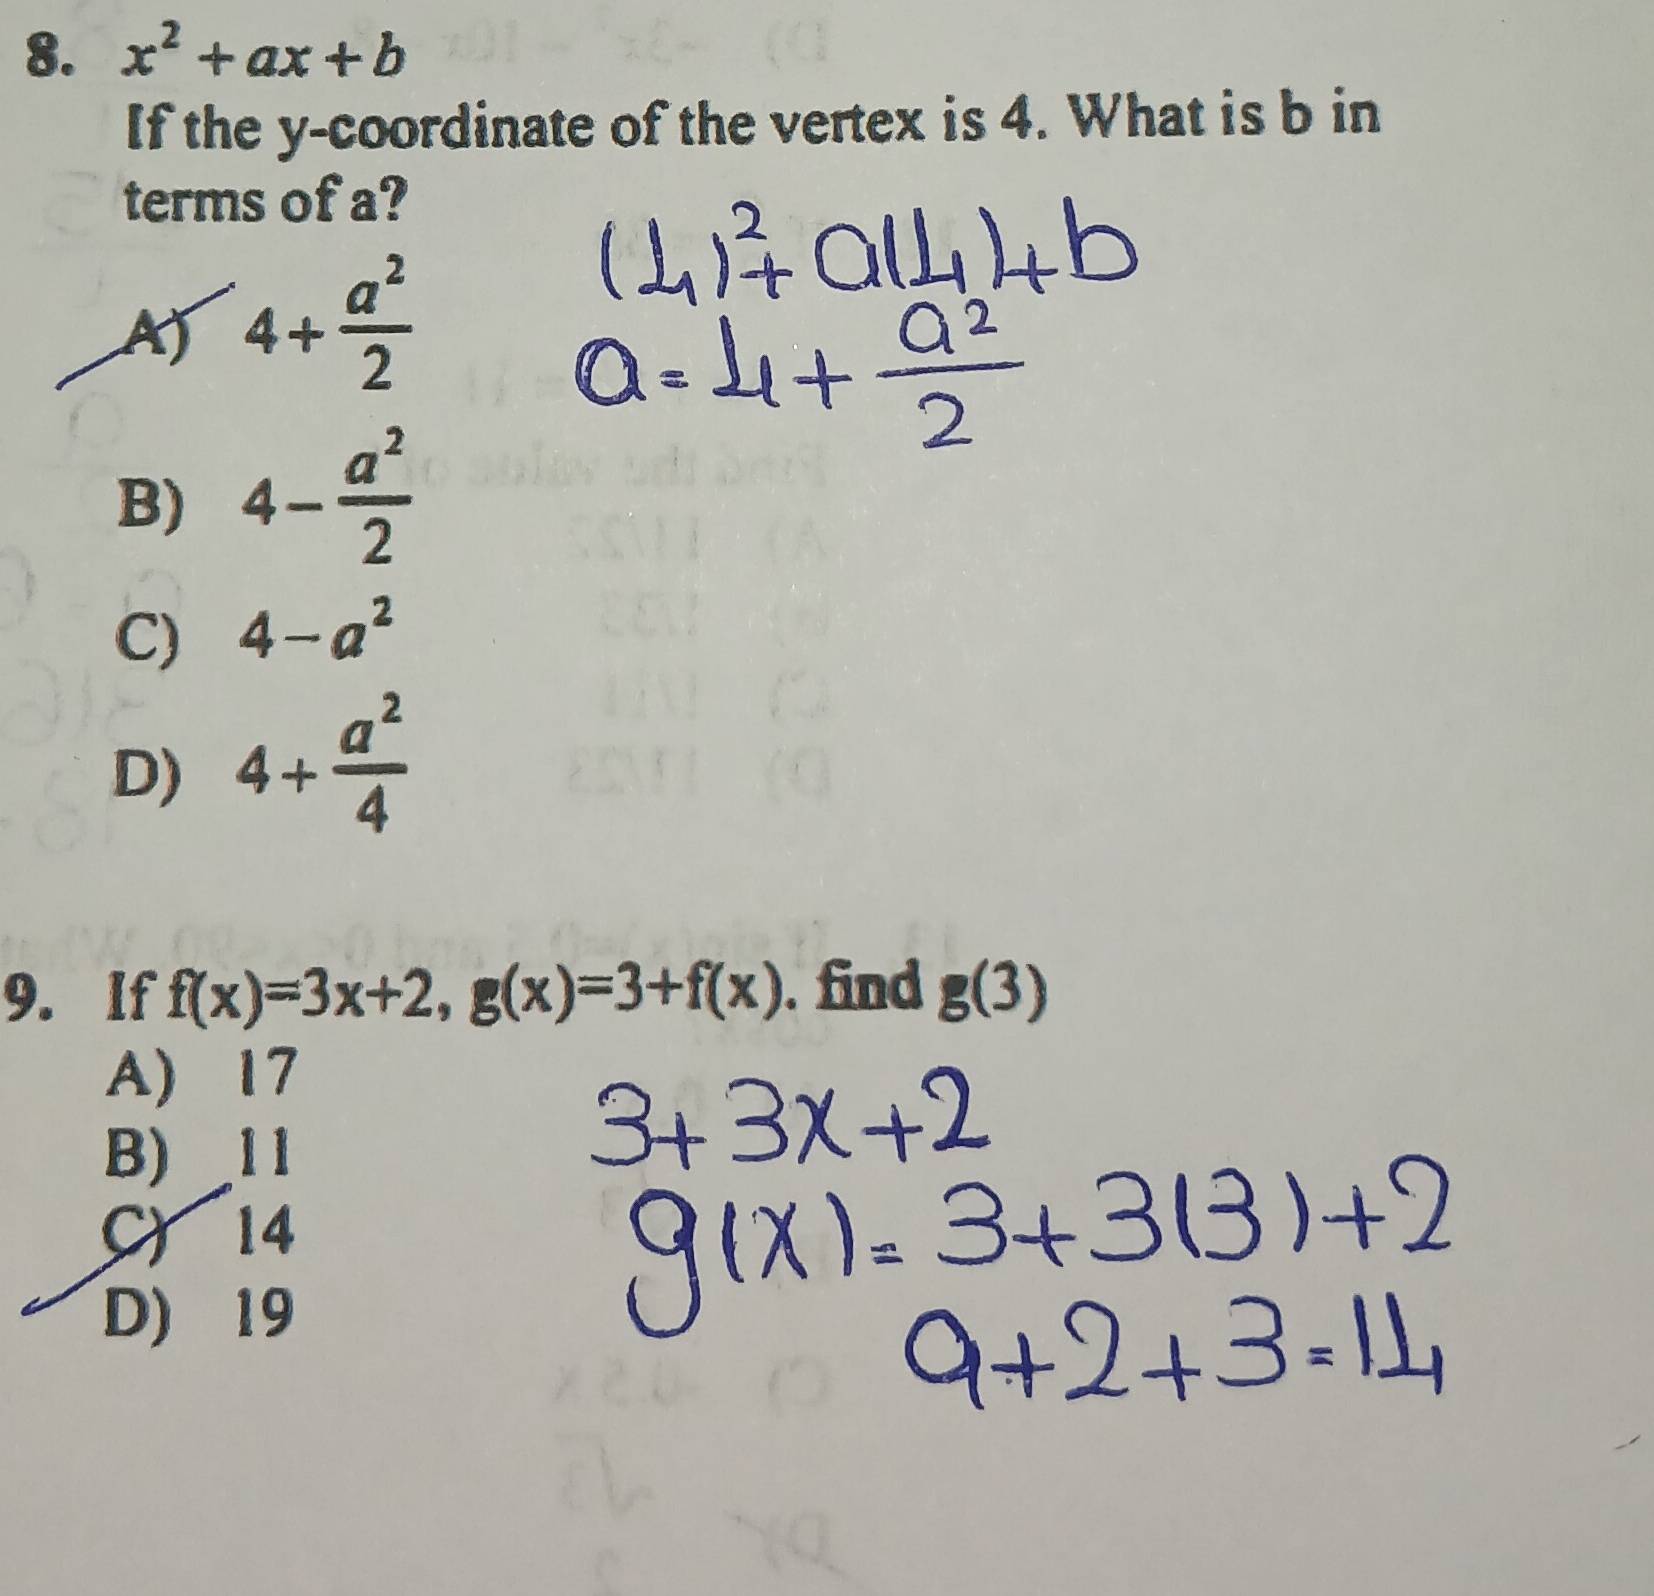 8. x² + ax + b
If the y-coordinate of the vertex is 4. What is b in
terms of a?
(4)² + a(4) + b
A) 4 + a²/2
a = 4 + a²/2
B) 4 − a²/2
C) 4 − a²
D) 4 + a²/4
9. If f(x)=3x+2, g(x)=3+f(x). find g(3)
A) 17
3 + 3x + 2
B) 11
g(x) = 3 + 3(3) + 2
C) 14
D) 19
9 + 2 + 3 = 14